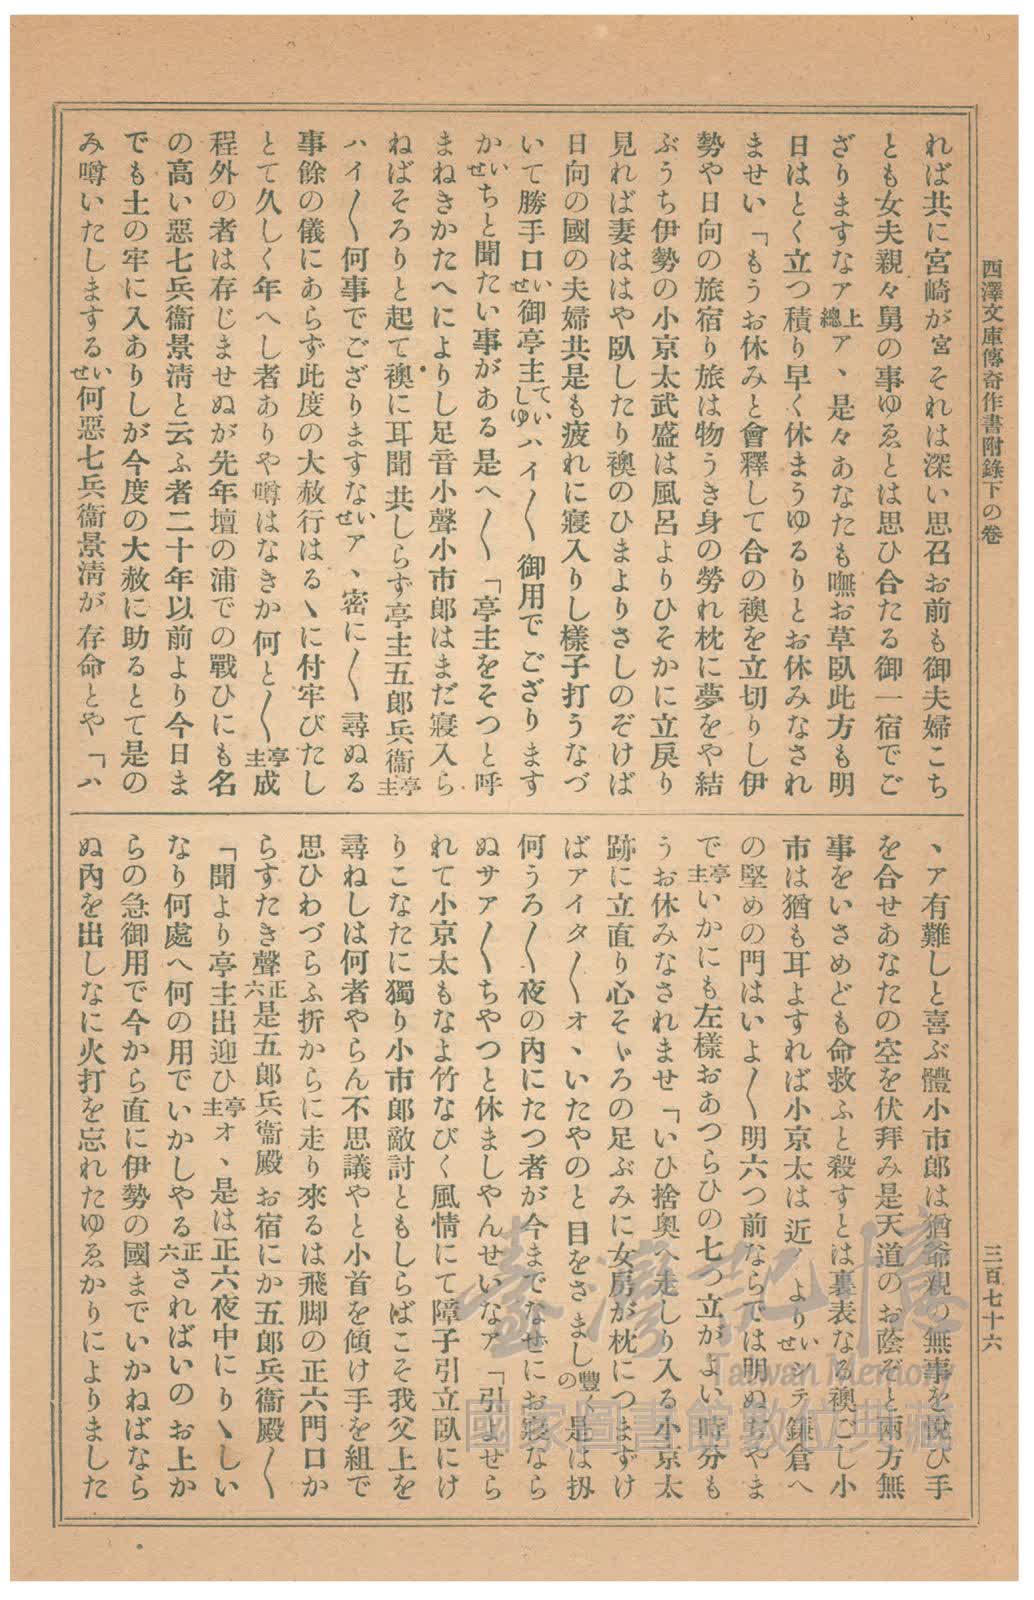 西澤文庫傳奇作書附錄下の卷
三百七十六
れば共に宮崎が宮それは深い思召お前も御夫婦こち
とも女夫親々舅の事ゆゑとは思ひ合たる御一宿でご
ざりますなア上總ア丶是々あなたも嘸お草臥此方も明
日はとく立つ積り早く休まうゆるりとお休みなされ
ませい「もうお休みと會釋して合の襖を立切りし伊
勢や日向の旅宿り旅は物うき身の勞れ枕に夢をや結
ぶうち伊勢の小京太武盛は風呂よりひそかに立戾り
見れば妻ははや臥したり襖のひまよりさしのぞけば
日向の國の夫婦共是も疲れに寢入りし樣子打うなづ
いて勝手口せい御亭主ていしゆハイ〱御用でござります
かせいちと聞たい事がある是へ〱「亭主をそつと呼
まねきかたへによりし足音小聲小市郎はまだ寢入ら
ねばそろりと起て襖に耳聞共しらず亭主五郎兵衞亭主
ハイ〱何事でござりますなせいア丶密に〱尋ぬる
事餘の儀にあらず此度の大赦行はるゝに付牢びたし
とて久しく年へし者ありや噂はなきか何と〱亭主成
程外の者は存じませぬが先年壇の浦での戰ひにも名
の高い惡七兵衞景淸と云ふ者二十年以前より今日ま
でも土の牢に入ありしが今度の大赦に助るとて是の
み噂いたしまするせい何惡七兵衞景淸が存命とや「ハ
丶ア有難しと喜ぶ體小市郎は猶爺親の無事を悅び手
を合せあなたの空を伏拜み是天道のお蔭ぞと兩方無
事をいさめども命救ふと殺すとは裏表なる襖ごし小
市は猶も耳よすれば小京太は近〱よりせいシテ鎌倉へ
の堅めの門はいよ〱明六つ前ならでは明ぬぢやま
で亭主いかにも左樣おあつらひの七つ立がよい時分も
うお休みなされませ「いひ捨奧へ走しり入る小京太
跡に立直り心そゞろの足ぶみに女房が枕につまずけ
ばアイタ〱オ丶いたやのと目をさまし豐の〱是は扨
何うろ〱夜の內にたつ者が今までなぜにお寢なら
ぬサア〱ちやつと休ましやんせいなア「引ませら
れて小京太もなよ竹なびく風情にて障子引立臥にけ
りこなたに獨り小市郎敵討ともしらばこそ我父上を
尋ねしは何者やらん不思議やと小首を傾け手を組で
思ひわづらふ折からに走り來るは飛脚の正六門口か
らすたき聲正六是五郎兵衞殿お宿にか五郎兵衞殿〱
「聞より亭主出迎ひ亭主オ丶是は正六夜中にりゝしい
なり何處へ何の用でいかしやる正六さればいのお上か
らの急御用で今から直に伊勢の國までいかねばなら
ぬ內を出しなに火打を忘れたゆゑかりによりました
臺灣記憶
Taiwan Memory
國家圖書館數位典藏